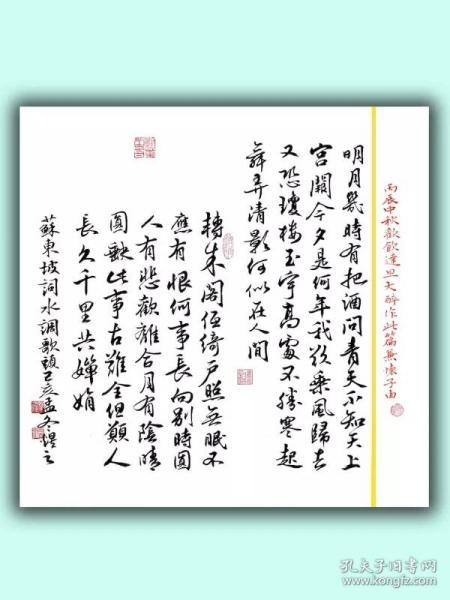 丙辰中秋歡飲達旦大醉作此篇兼懷子由
明月幾時有把酒問青天不知天上
宮闕今夕是何年我欲乘風歸去
又恐瓊樓玉宇高處不勝寒起
舞弄清影何似在人間
轉朱閣低綺戶照無眠不
應有恨何事長向別時圓
人有悲歡離合月有陰晴
圓缺此事古難全但願人
長久千里共嬋娟
蘇東坡詞水調歌頭己亥孟冬
孔夫子旧书网
www.kongfz.com